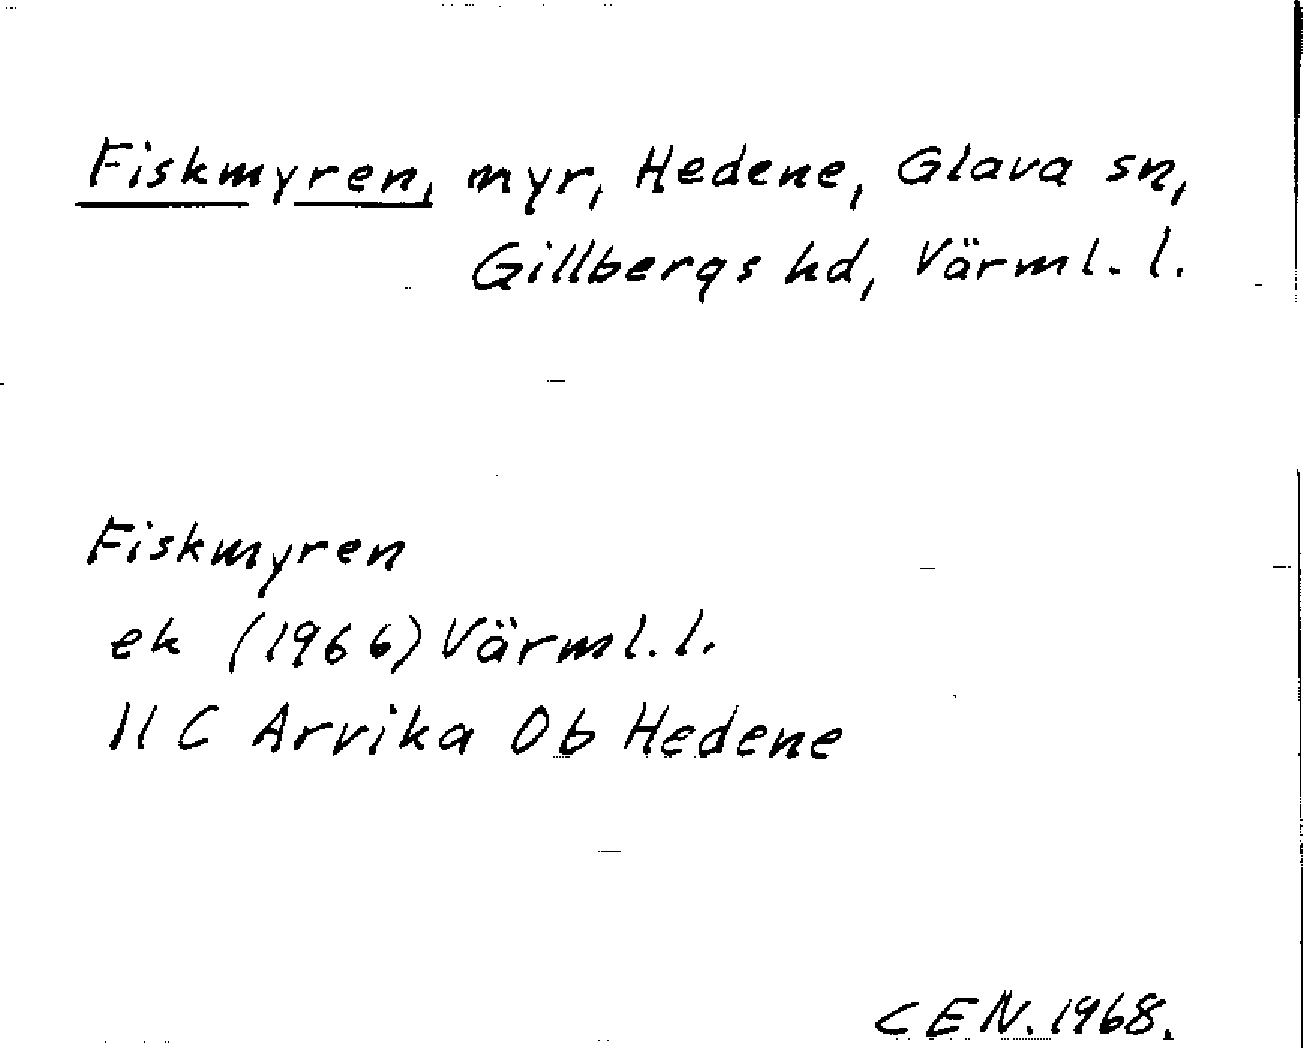 Fiskmyren, myr, Hedene, Glava sn,
Gillbergs hd, Värml. l.
Fiskmyren
ek (1966) Värml. l.
11 C Arvika 0b Hedene
CEN. 1968.